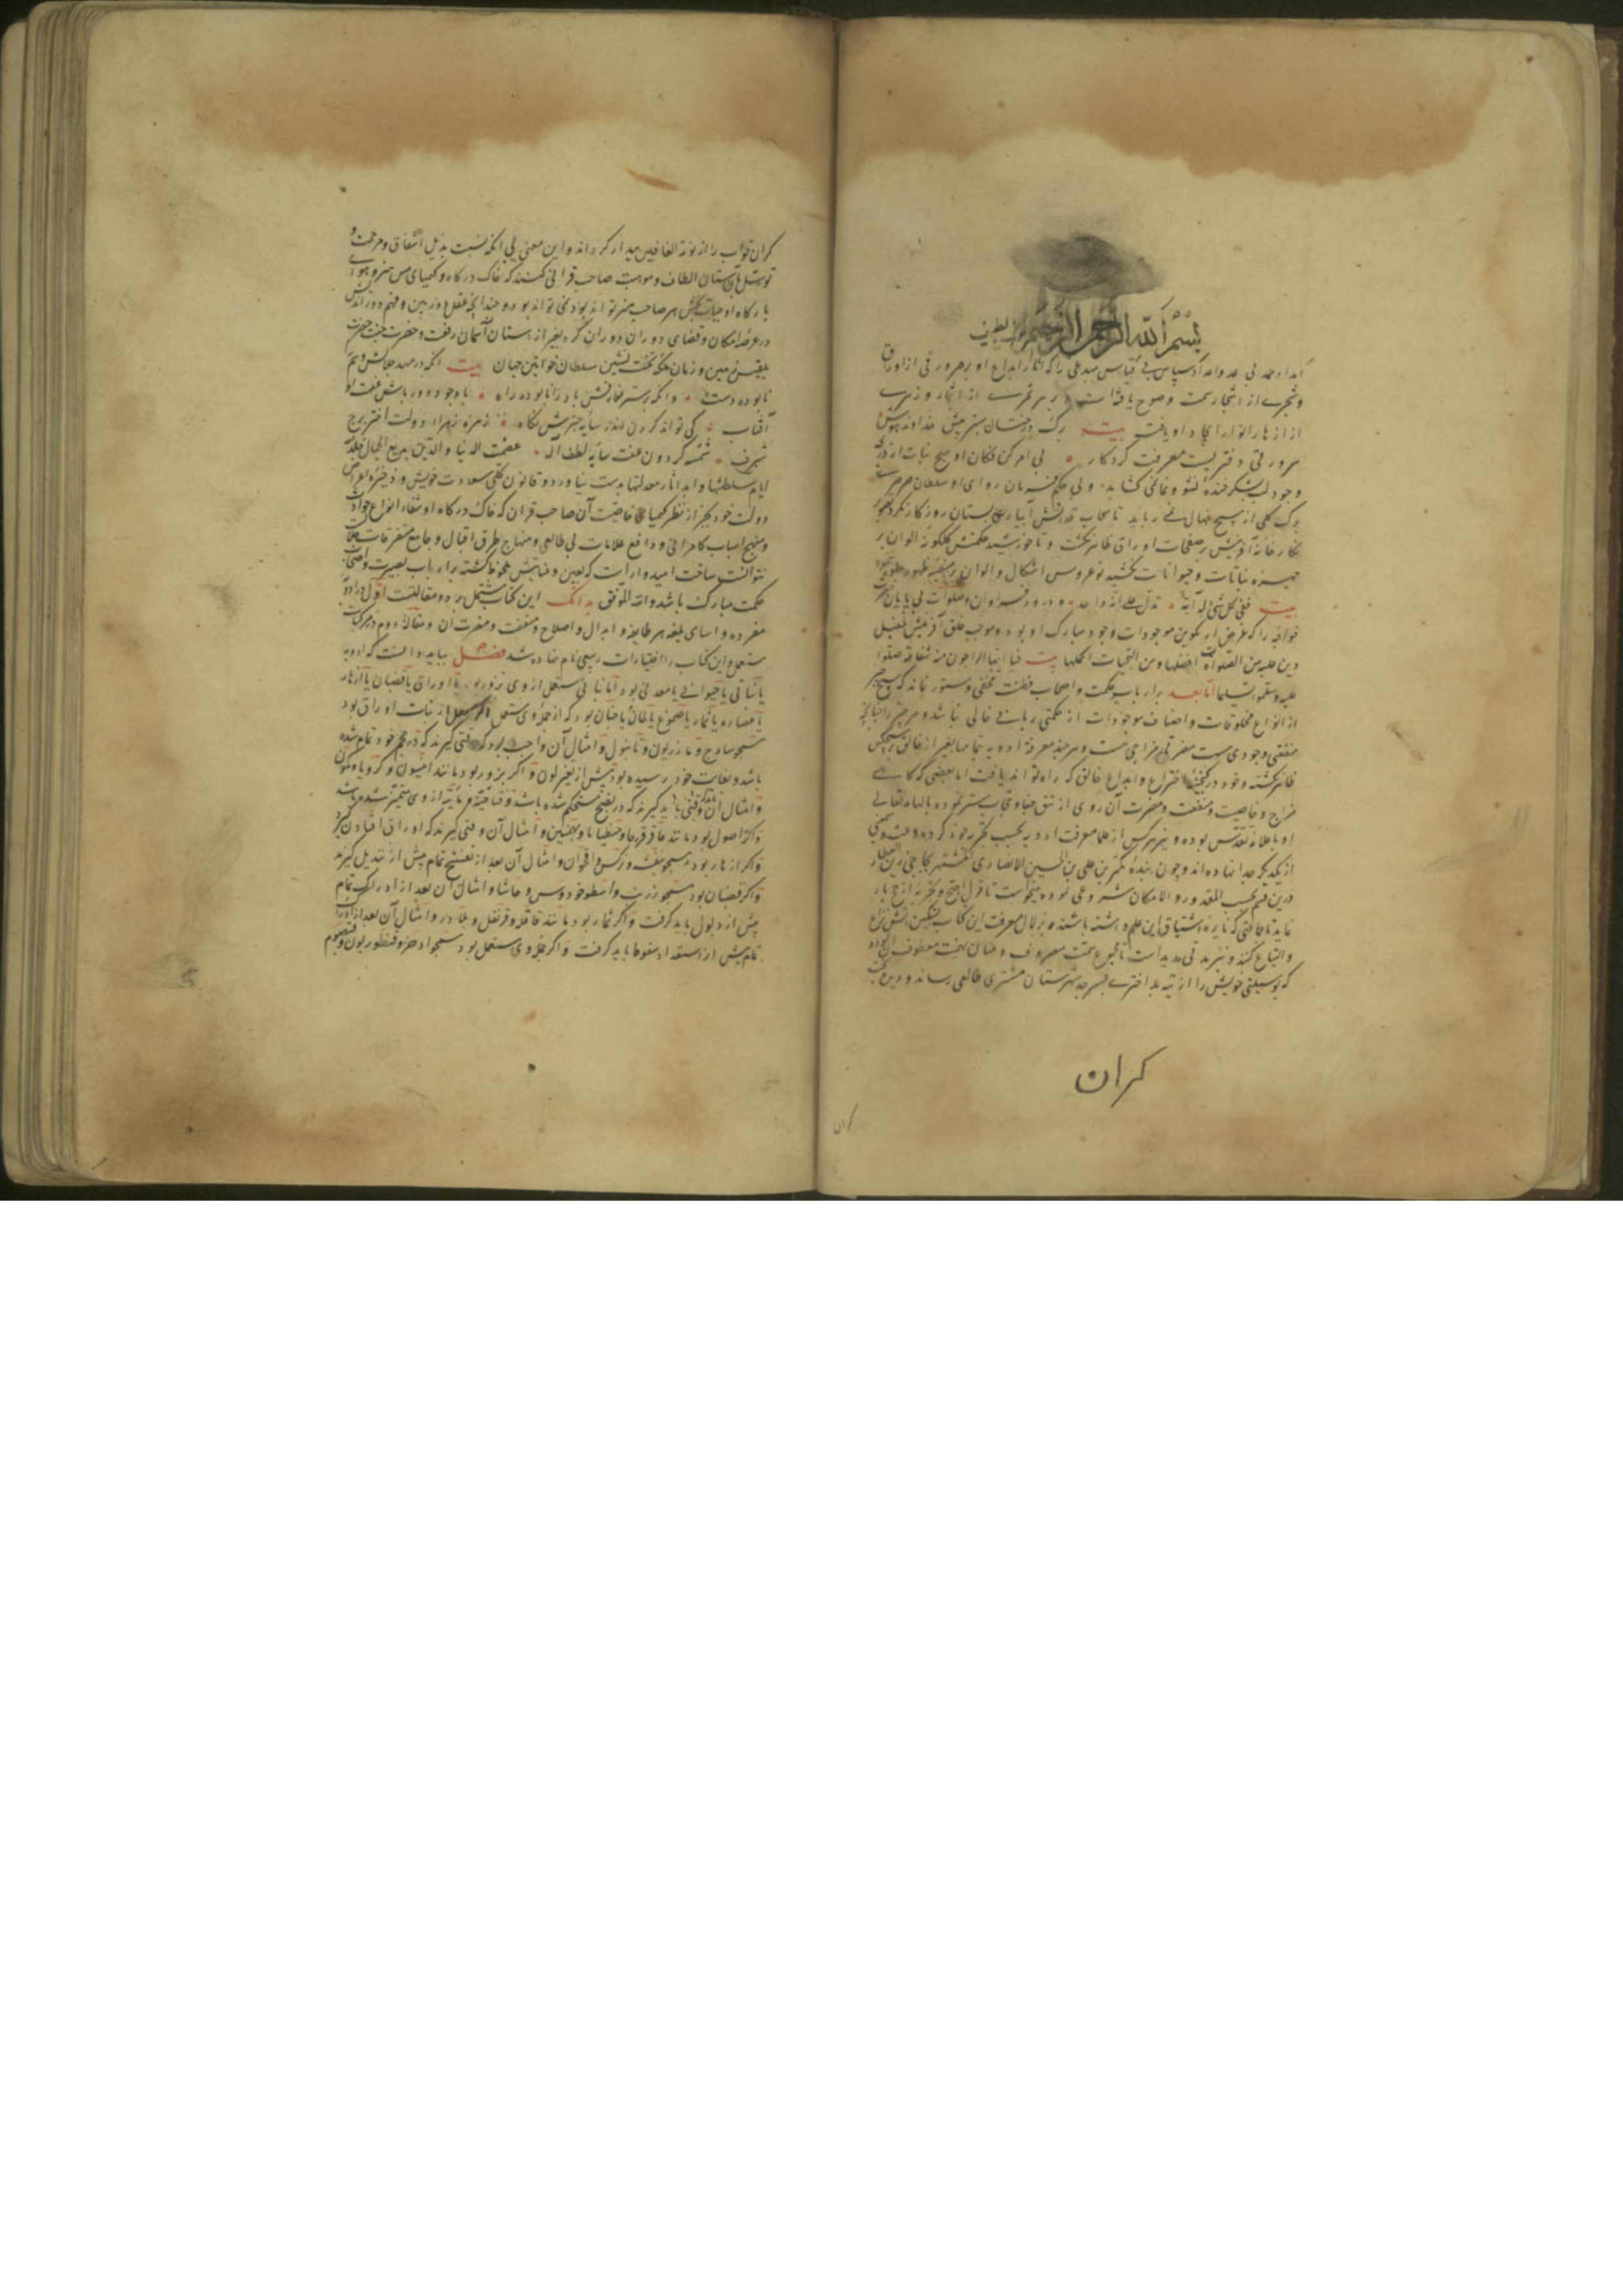 بسم الله الرحمن الرحیم
امداد حمد بی عد و اعداد سپاس بی قیاس مبدعی را که آثار ابداع او بر هر ورقی از اوراق
و شجری از اشجار سمت وضوح یافته است و بر هر ثمری از اثمار و زهری
از ازهار انوار ایجاد او یافت بیت برک درختان سبز پیش خداوند هوش
هر ورقی دفتریست معرفت کردکار بی امر کن فکان او هیچ نبات از
وجود لب بشکر خنده نشو و نما نمی کشاید و بی حکم فرمان روای او سلطان
برک کلی از هیچ نهال نمی رباید تا سحاب قدرتش آبیاری بستان روزکار نکرد
نکارخانه آفرینش بر صفحات اوراق ظاهر نکشت و تا خورشید حکمتش کلکونه الوان بر
چهره نباتات و حیوانات نکشید نوعروس اشکال و الوان
بیت ففی کل شئ له آیة تدل علی انه واحد و درود فراوان و صلوات بی پایان
خواجه را که غرض از تکوین موجودات وجود مبارک او بود و موجب خلق آفرینش
علیه من الصلوات افضلها و من التحیات اکملها بیت فیا ایها الراجون منه شفاعة صلوا
علیه و سلموا تسلیما اما بعد بر ارباب حکمت و اصحاب فطنت مخفی و مستور نماند که هیچ
از انواع مخلوقات و اصناف موجودات از حکمتی ربانی خالی نباشد و هر چیز را
منفعتی و جودی هست مضرتی و مزاجی هست و هر چند معرفة ادویه بتمامها بغیر از خالق بر هیچکس
ظاهر نکشته و خود در اختراع و ابداع خالق که راه تواند یافت اما بعضی که
مزاج و خاصیت و منفعت و مضرت آن روی از تتق بالهام تعالی
او با علا تقدس بوده و نیز هر کس از علما معرفت ادویه بحسب تجربه خود کرده
از یکدیکر جدا نهاده اند و چون بنده کمترین علی بن الحسین الانصاری المشتهر بحاجی زین العطار
درین قسم بحسب المقدور و الامکان شروعی نموده میخواست تا
نماید تا جماعتی که نایره اشتیاق این علم داشته باشند بزلال معرفت این کتاب تسکین
و التیاع کنند و نیز مدتی مدید است تا مجموع همت مصروف و عنان نهمت معطوف
که بوسیلتی خویش را از تیه بد اختری بسرحد شهرستان مشتری طالعی رساند و
کران
کران خواب را از نوبة الغافلین بیدار کرداند و این معنی بی آنکه تشبث بذیل اشفاق و مرحمت و
توسل بآستان الطاف و موهبت صاحب قرانی کنند که خاک درکاه و کیمیای مس هنر و هوای
بارکاه او حیات بخش هر صاحب هنر تواند بود نمی تواند بود و چندانکه عقل دوربین و فهم دور
در عرصه امکان و فضای دوران دوران کرد بغیر از آستان آسمان رفعت و حضرت
بلقیس زمین و زمان ملکه تخت نشین سلطان خواتین جهان بیت آنکه در مهد جلالش وهم
نابوده دست و آنکه بر ستر باد را نابوده راه با وجود دور باش عفت او
آفتاب کی تواند کردن اندر سایه چترش نکاه زهره زهراء دولت اختر برج
شرف شمسه کردون عفت سایه لطف اله عصمت الدنیا و الدین بدیع الجمال
ایام سلطنتها و ابد آثار معدلتها بدست نیاورد و قانون کلی سعادت خویش و ذخیره
دولت خود بجز از نظر کیمیا خاصیت آن صاحب قران که خاک درکاه او شفاء انواع
و منهج اسباب کامرانی و دافع علامات بی طالعی و منهاج طرق اقبال و جامع متفرقات
نتوانست ساخت امیدوار است که بعین عنایتش ملحوظ کشته بر ارباب بصیرت و اصحاب
حکمت مبارک باشد و الله الموفق بدانک این کتاب مشتمل بر دو مقالتست اول در ادویه
مفرده و اسامی بلغه هر طایفه و ابدال و اصلاح و منفعت و مضرت آن و مقاله دوم در مرکبات
مستعمل و این کتاب را اختیارات بدیعی نام نهاده شد فصل بباید دانست که ادویه
یا نباتی یا حیوانی یا معدنی بود اما نباتی مستعمل از وی بزور بود یا اوراق یا قضبان یا ازهار
یا عصاره یا ثمار یا صموغ یا البان بود که از جمله وی مستعمل اکر مستعمل از نبات اوراق بود
همچو سادج و مازریون و تانبول و امثال آن واجب بود که وقتی کیرند که در حجم خود تمام شده
باشد و بغایت خود رسیده بود پیش از تغیر لون و اکر بزور بود مانند انیسون و کرویا و کمون
و امثال آن وقتی باید کیرند که در نضج مستحکم شده باشد و فجاجت و مائیت از وی متمیز شده باشد
و اکر اصول بود مانند عاقرقرحا و جنطیانا و بهمنین و امثال آن وقتی کیرند که اوراق افتادن کیرد
و اکر ازهار بود همچو بنفشه و نرکس و اقحوان و امثال آن بعد از تفتح تمام پیش از تبدیل کیرند
و اکر قضبان بود همچو زرنب و اسطوخودوس و حاشا و امثال آن بعد از ادراک تمام
پیش از ذبول باید کرفت و اکر ثمار بود مانند قاقله و قرنفل و بلادر و امثال آن بعد از ادراک
تمام پیش از استعداد سقوط باید کرفت و اکر جمله وی مستعمل بود همچو اذخر و قنطوریون و قیصوم